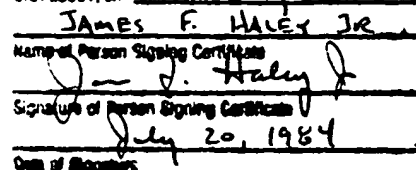 JAMES F. HALEY JR.
Name of Person Signing Certificate
James F. Haley Jr
Signature of Person Signing Certificate
July 20, 1984
Date of Signature